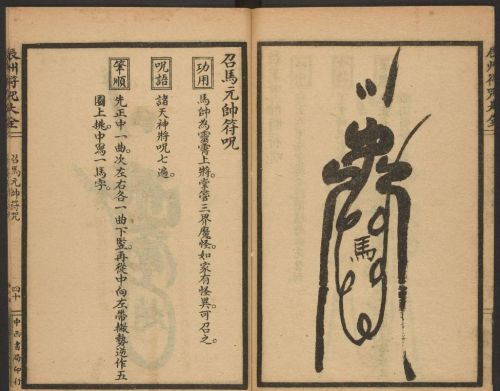 馬
召馬元帥符呪
功用
馬帥為靈霄上將。掌管三界魔怪。如家有怪異可召之。
呪語
諸天神將呪七遍。
筆順
先正中一曲。次左右各一曲下竪。再從中向左帶搬勢造作五
圈上挑。中寫一馬字。
辰州符咒大全
召馬元帥符咒
四十
中西書局印行